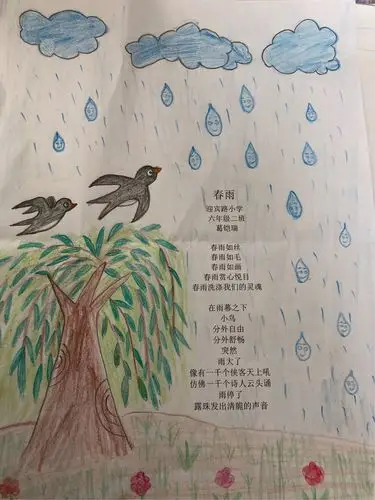 春雨
迎宾路小学
六年级二班
葛铠瑞
春雨如丝
春雨如毛
春雨如画
春雨赏心悦目
春雨洗涤我们的灵魂
在雨幕之下
小鸟
分外自由
分外舒畅
突然
雨大了
像有一千个侠客天上吼
仿佛一千个诗人云头诵
雨停了
露珠发出清脆的声音